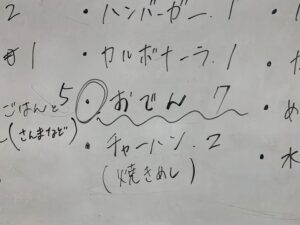 2
・ハンバーガー.1
1
・カルボナーラ.1
ごはんと5
(さんまなど)
・おでん 7
・チャーハン.2
(焼きめし)
・め
・水